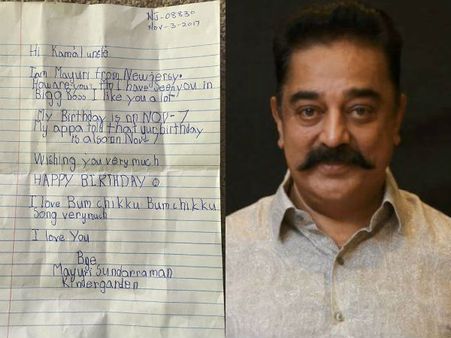 NJ-08830
Nov-3-2017
Hi Kamal uncle
I am Mayuri from New jersy.
How are you? I have seen you in
Bigg Boss I like you a lot
My Birthday is on NOV-7
My appa told that your birthday
is also on Nov 7
Wishing you very much
HAPPY BIRTHDAY
I love Bum chikku Bum chikku
Song very much
I love You
Bye
Mayuri Sundarraman
Kindergarden